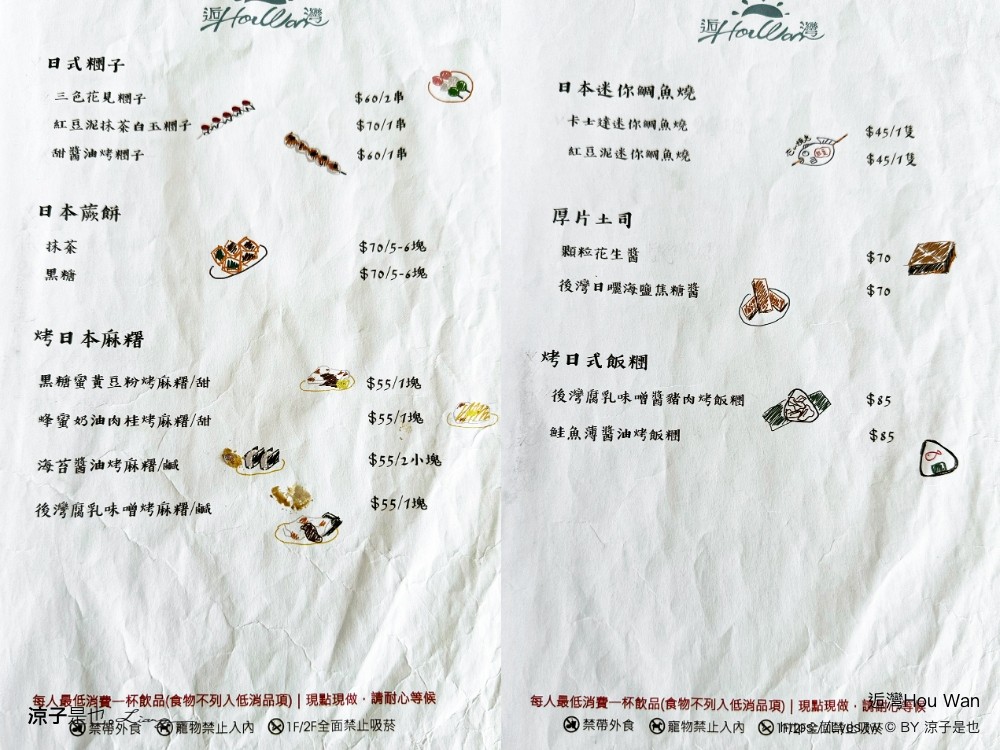 逅Hou Wan灣
日式糰子
三色花見糰子 $60/2串
紅豆泥抹茶白玉糰子 $70/1串
甜醬油烤糰子 $60/1串
日本蕨餅
抹茶 $70/5-6塊
黑糖 $70/5-6塊
烤日本麻糬
黑糖蜜黃豆粉烤麻糬/甜 $55/1塊
蜂蜜奶油肉桂烤麻糬/甜 $55/1塊
海苔醬油烤麻糬/鹹 $55/2小塊
後灣腐乳味噌烤麻糬/鹹 $55/1塊
每人最低消費一杯飲品(食物不列入低消品項)|現點現做,請耐心等候
禁帶外食 寵物禁止入內 1F/2F全面禁止吸菸
涼子是也
逅Hou Wan灣
日本迷你鯛魚燒
卡士達迷你鯛魚燒 $45/1隻
紅豆泥迷你鯛魚燒 $45/1隻
厚片土司
顆粒花生醬 $70
後灣日曬海鹽焦糖醬 $70
烤日式飯糰
後灣腐乳味噌醬豬肉烤飯糰 $85
鮭魚薄醬油烤飯糰 $85
每人最低消費一杯飲品(食物不列入低消品項)|現點現做,請耐心等候
禁帶外食 寵物禁止入內 1F/2F全面禁止吸菸
逅灣Hou Wan
© BY 涼子是也